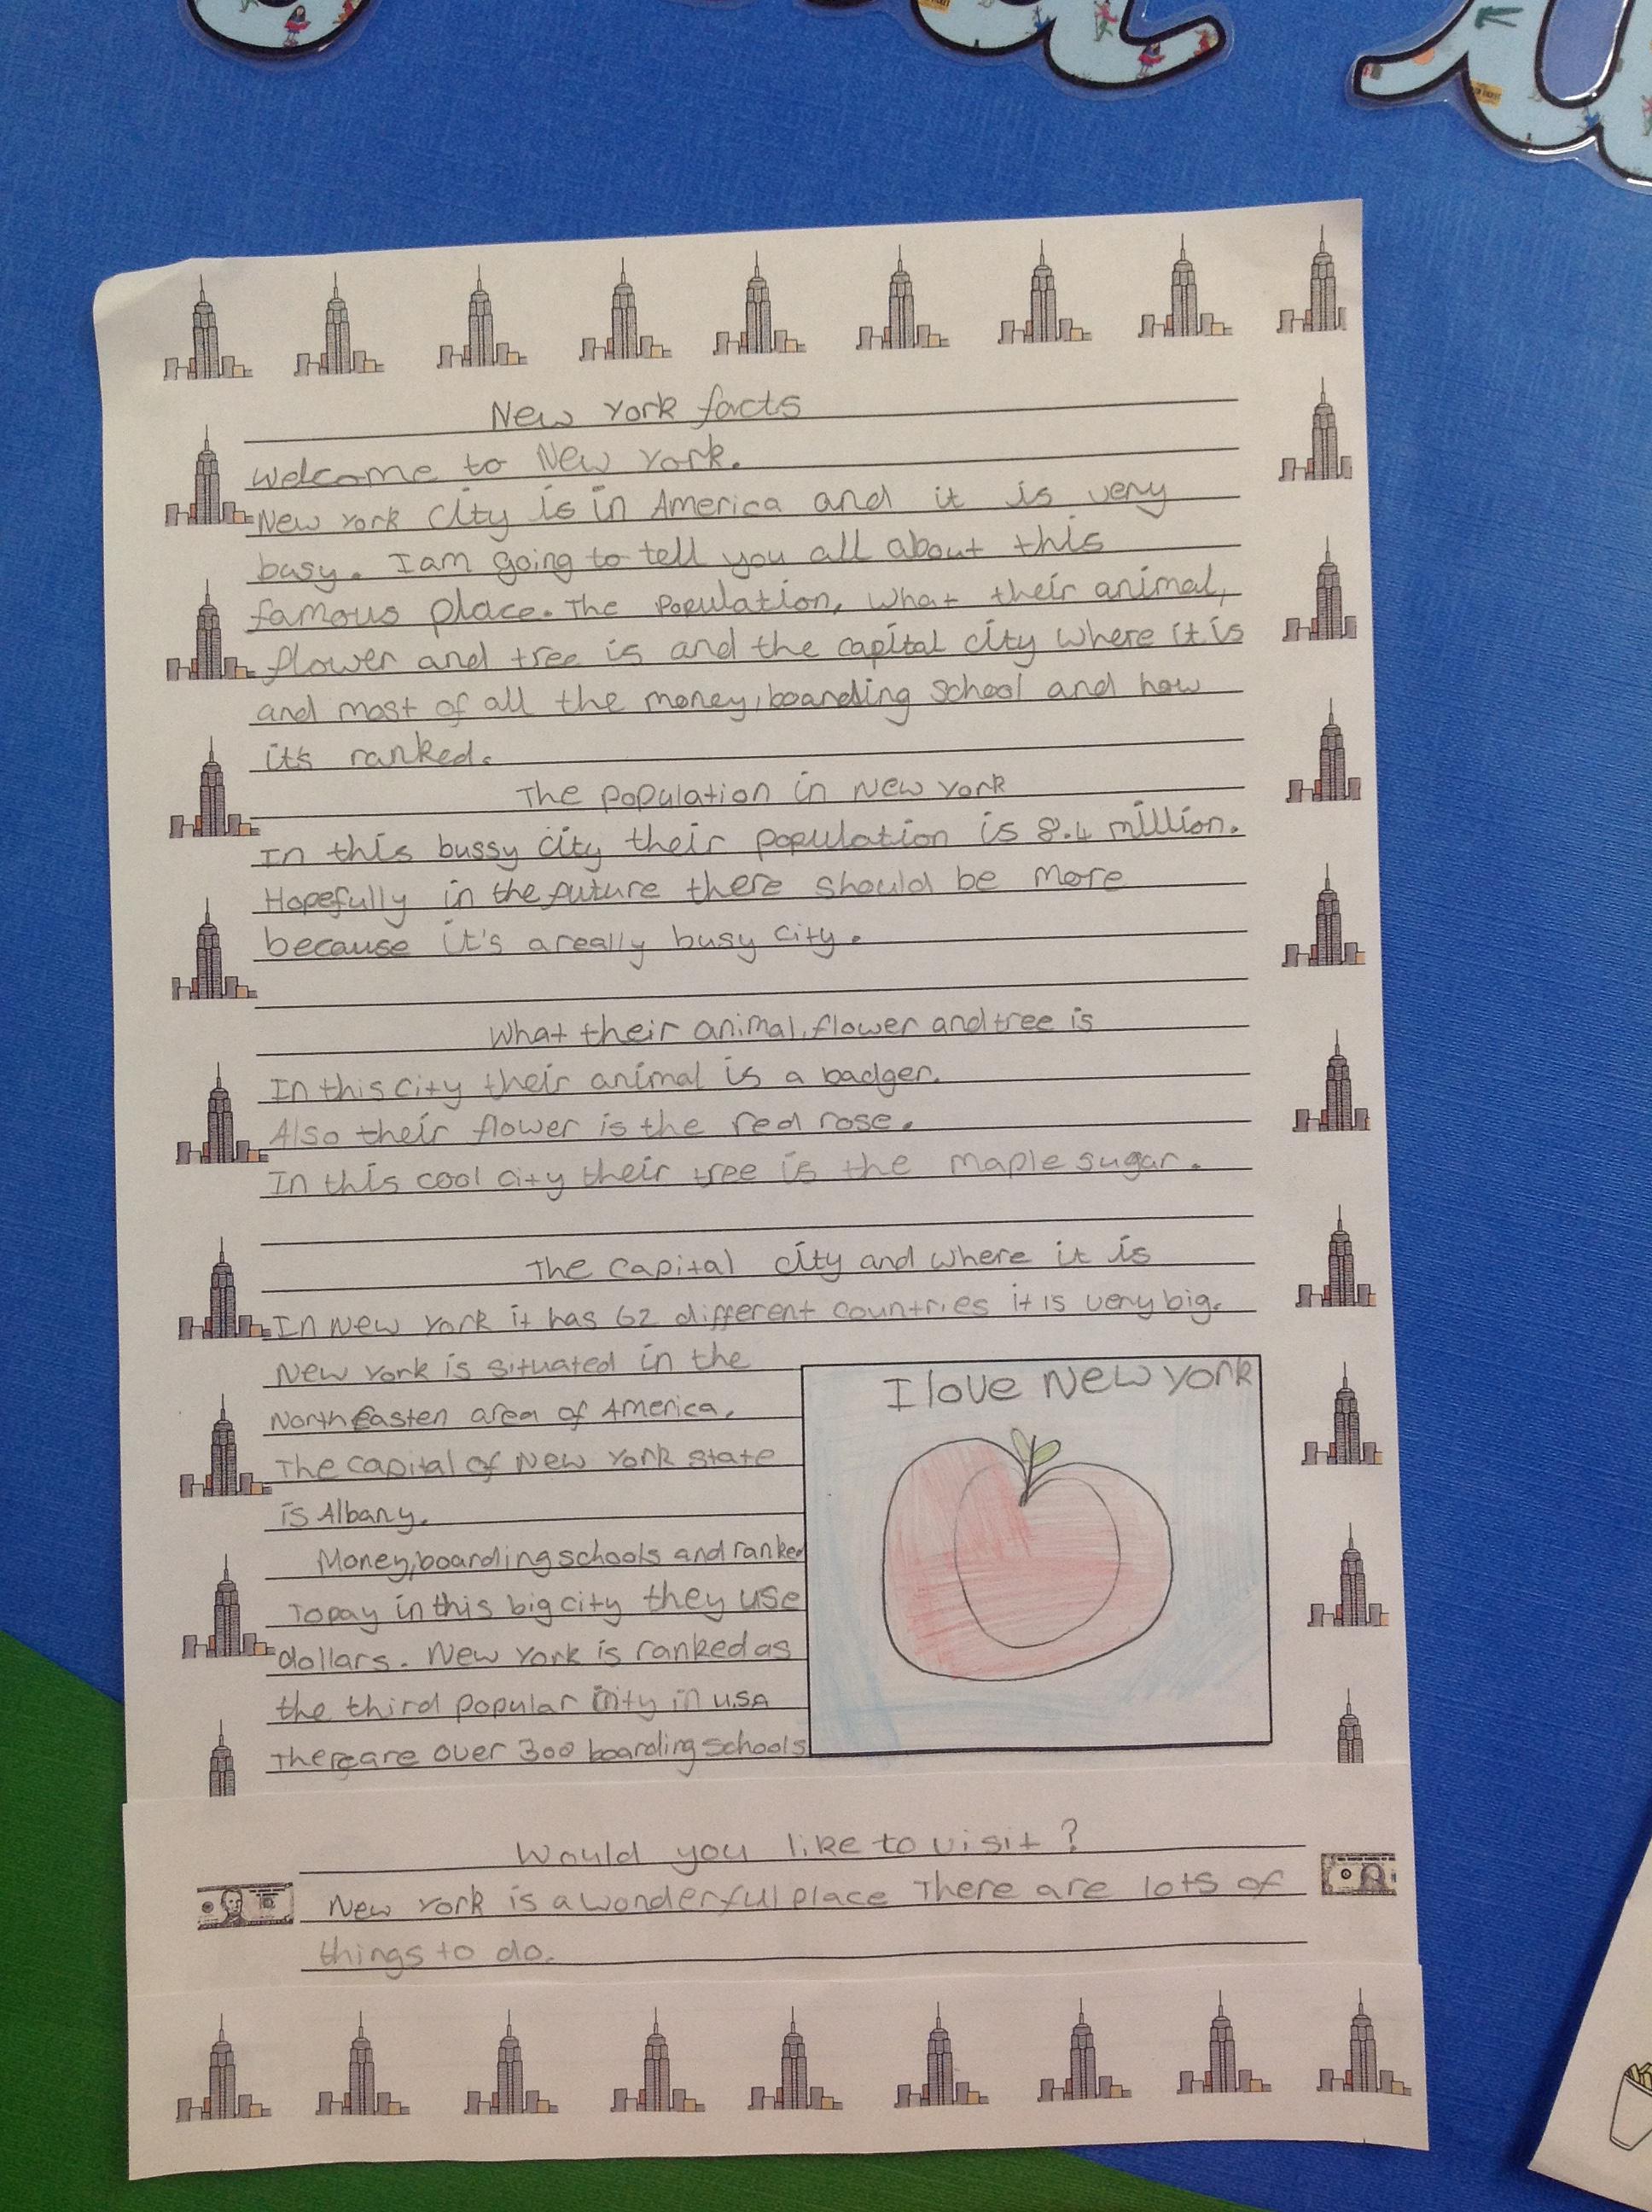 New York facts
Welcome to New York.
New York City is in America and it is very
busy. I am going to tell you all about this
famous place. The population, what their animal,
flower and tree is and the capital city where it is
and most of all the money, boarding school and how
it's ranked.
The population in New York
In this bussy city their population is 8.4 million.
Hopefully in the future there should be more
because it's a really busy city.
What their animal, flower and tree is
In this city their animal is a badger.
Also their flower is the red rose.
In this cool city their tree is the maple sugar.
The capital city and where it is
In New York it has 62 different countries it is very big.
New York is situated in the
North Easten area of America.
The capital of New York state
is Albany.
Money, boarding schools and ranked
To pay in this big city they use
dollars. New York is ranked as
the third popular city in USA
There are over 300 boarding schools
I love New York
Would you like to visit?
New York is a wonderful place There are lots of
things to do.